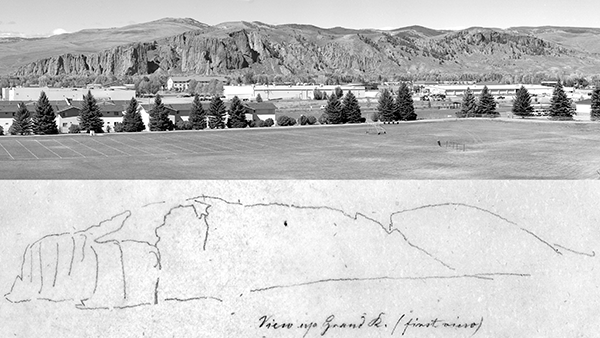 View up Grand R. (first view)